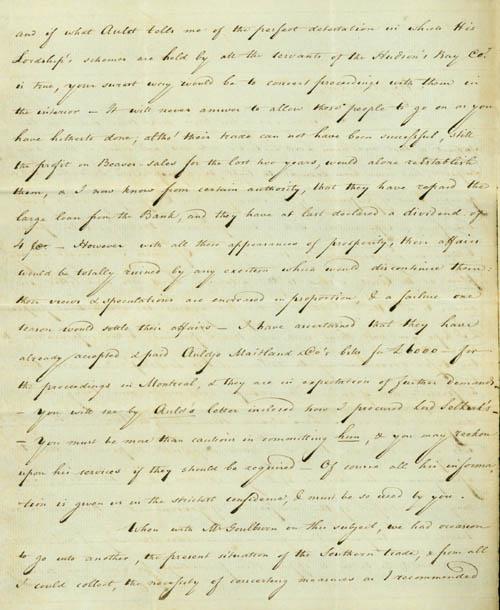 and if what Auld tells me of the perfect detestation in which His
Lordship's schemes are held by all the servants of the Hudson's Bay Co.y
is true, your surest way would be to concert proceedings with them in
the interior — It will never answer to allow those people to go on as you
have hitherto done, altho' their trade can not have been successful, still
the profit on Beaver sales for the last two years, would alone reestablish
them, & I now know from certain authority, that they have repaid the
large loan from the Bank, and they have at last declared a dividend of
4 — However with all these appearances of prosperity, their affairs
would be totally ruined by any exertion which would discontinue them:
their views & speculations are encreased in proportion, & a failure one
season would settle their affairs — I have ascertained that they have
already accepted & paid Auldjo Maitland & Co's bills for £6000 — for
the proceedings in Montreal, & they are in expectation of further demands
— you will see by Auld's letter inclosed how I procured Lord Selkirk's
— You must be more than cautious in committing him, & you may reckon
upon his services if they should be required — Of course all his informa
tion is given us in the strictest confidence, & must be so used by you.
When with Mr Goulburn on this subject, we had occasion
to go into another, the present situation of the Southern trade, & from all
I could collect, the necessity of concerting measures as I recommended